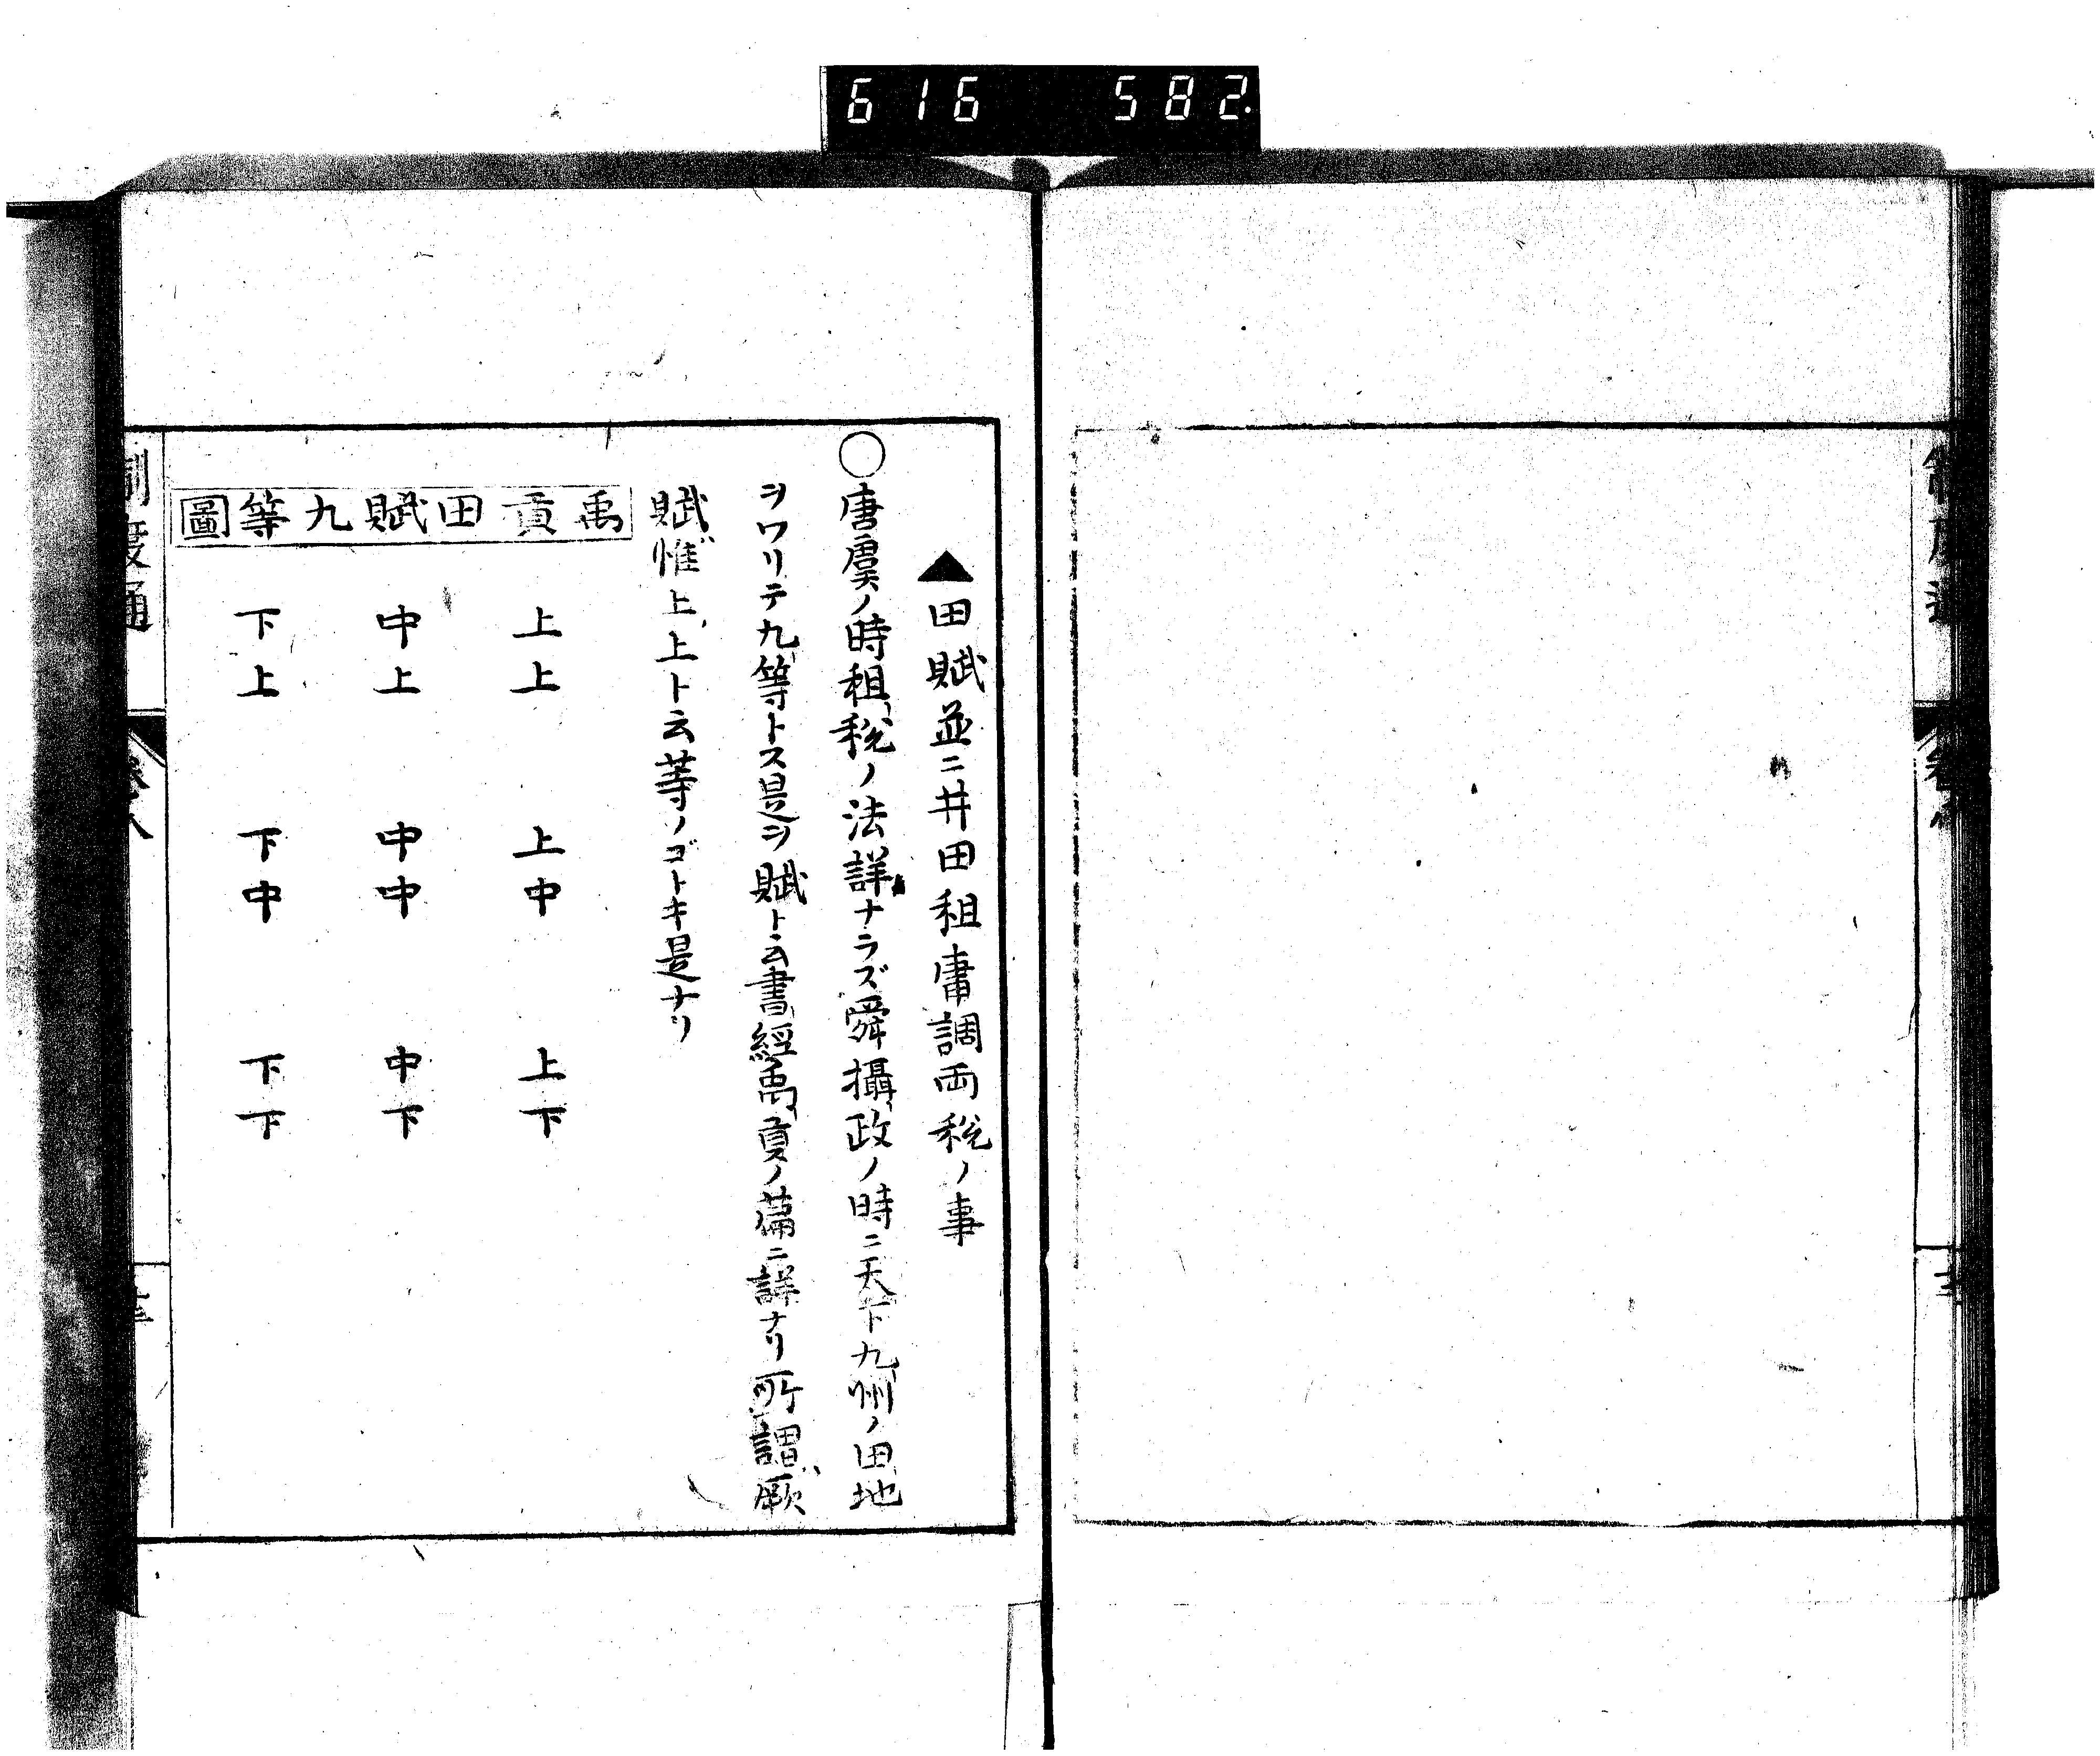 616 582
▲田賦並ニ井田租庸調両税ノ事
○唐虞ノ時租税ノ法詳ナラズ舜攝政ノ時ニ天下九州ノ田地
ヲワリテ九等トス是ヲ賦ト云書經禹貢ノ萹ニ詳ナリ所謂厥
賦惟上上ト云等ノゴトキ是ナリ
禹貢田賦九等圖
上上 上中 上下
中上 中中 中下
下上 下中 下下
制度通
巻八